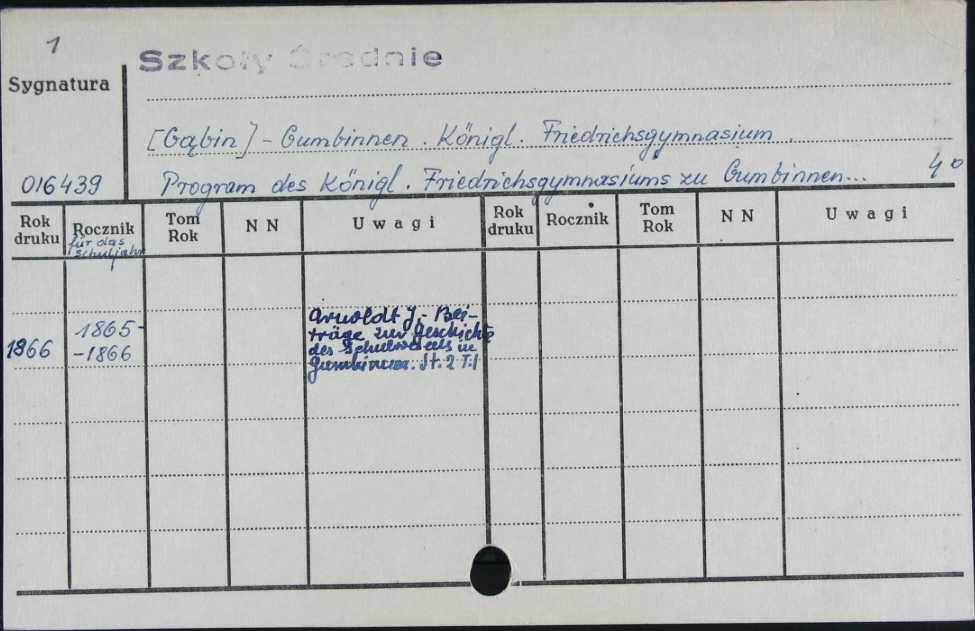 1
Szkoły Średnie
Sygnatura
[Gąbin] - Gumbinnen. Königl. Friedrichsgymnasium.
016439
Program des Königl. Friedrichsgymnasiums zu Gumbinnen... 4o
Rok druku
Rocznik
für das
Schuljahr
Tom Rok
N N
Uwagi
Rok druku
Rocznik
Tom Rok
N N
Uwagi
1866
1865-
-1866
Arnoldt J.- Bei-
träge zur Geschichte
des Schulwesens in
Gumbinnen. St. 2 T.1